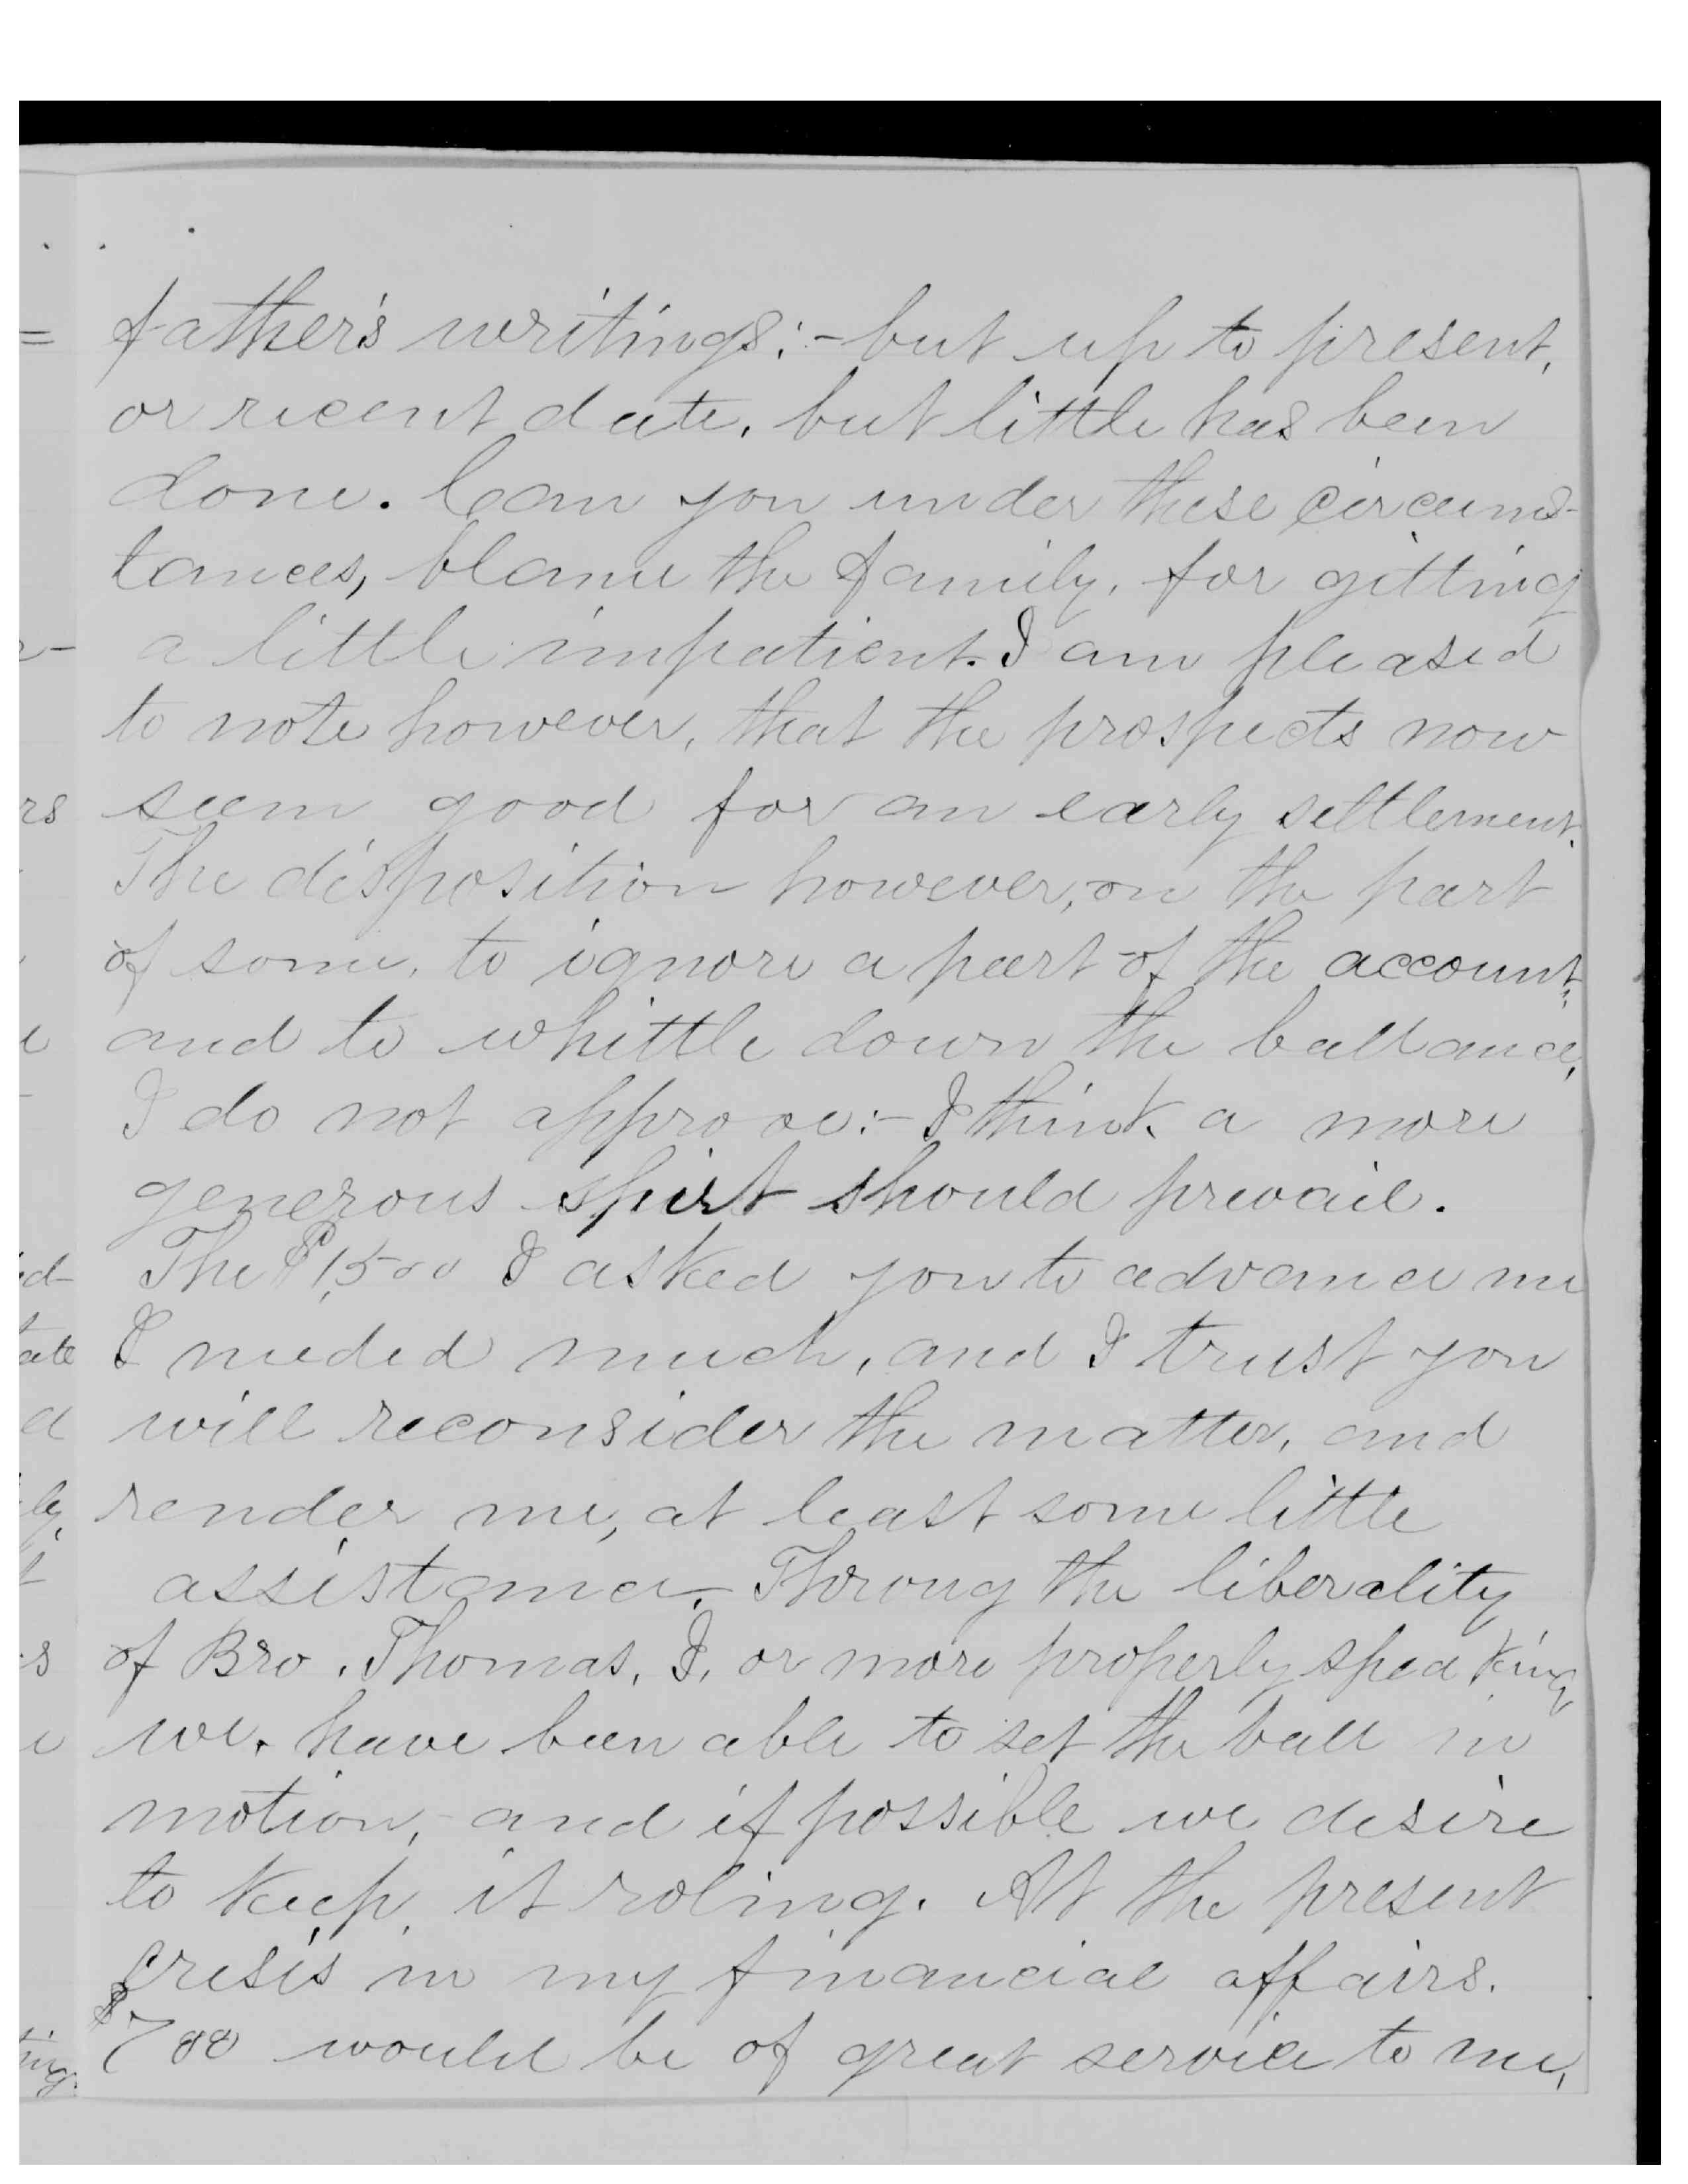 father's writings:- but up to present,
or recent date, but little has been
done. Can you under these circums-
tances, blame the family, for gitting
a little impatient. I am pleased
to note however, that the prospects now
seem good for an early settlement.
The disposition however, on the part
of some, to ignore a part of the account,
and to whittle down the ballance,
I do not approve:- I think a more
generous spirt should prevail.
The $1,500 I asked you to advance me
I needed much, and I trust you
will reconsider the matter, and
render me, at least some little
assistance. Throug the liberality
of Bro. Thomas, I, or more properly speaking
we, have been able to set the ball in
motion, and if possible we desire
to keep it roling. At the present
crisis in my financial affairs.
$700 would be of great service to me,